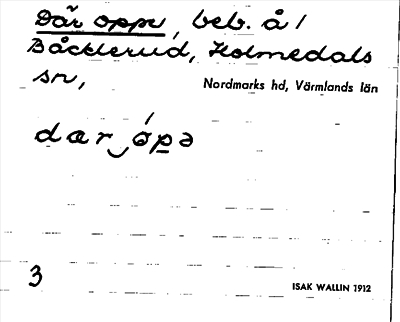 Där oppe, beb. å/
Båcklerud, Holmedals
sn,
Nordmarks hd, Värmlands län
dær‿ópə
3
ISAK WALLIN 1912